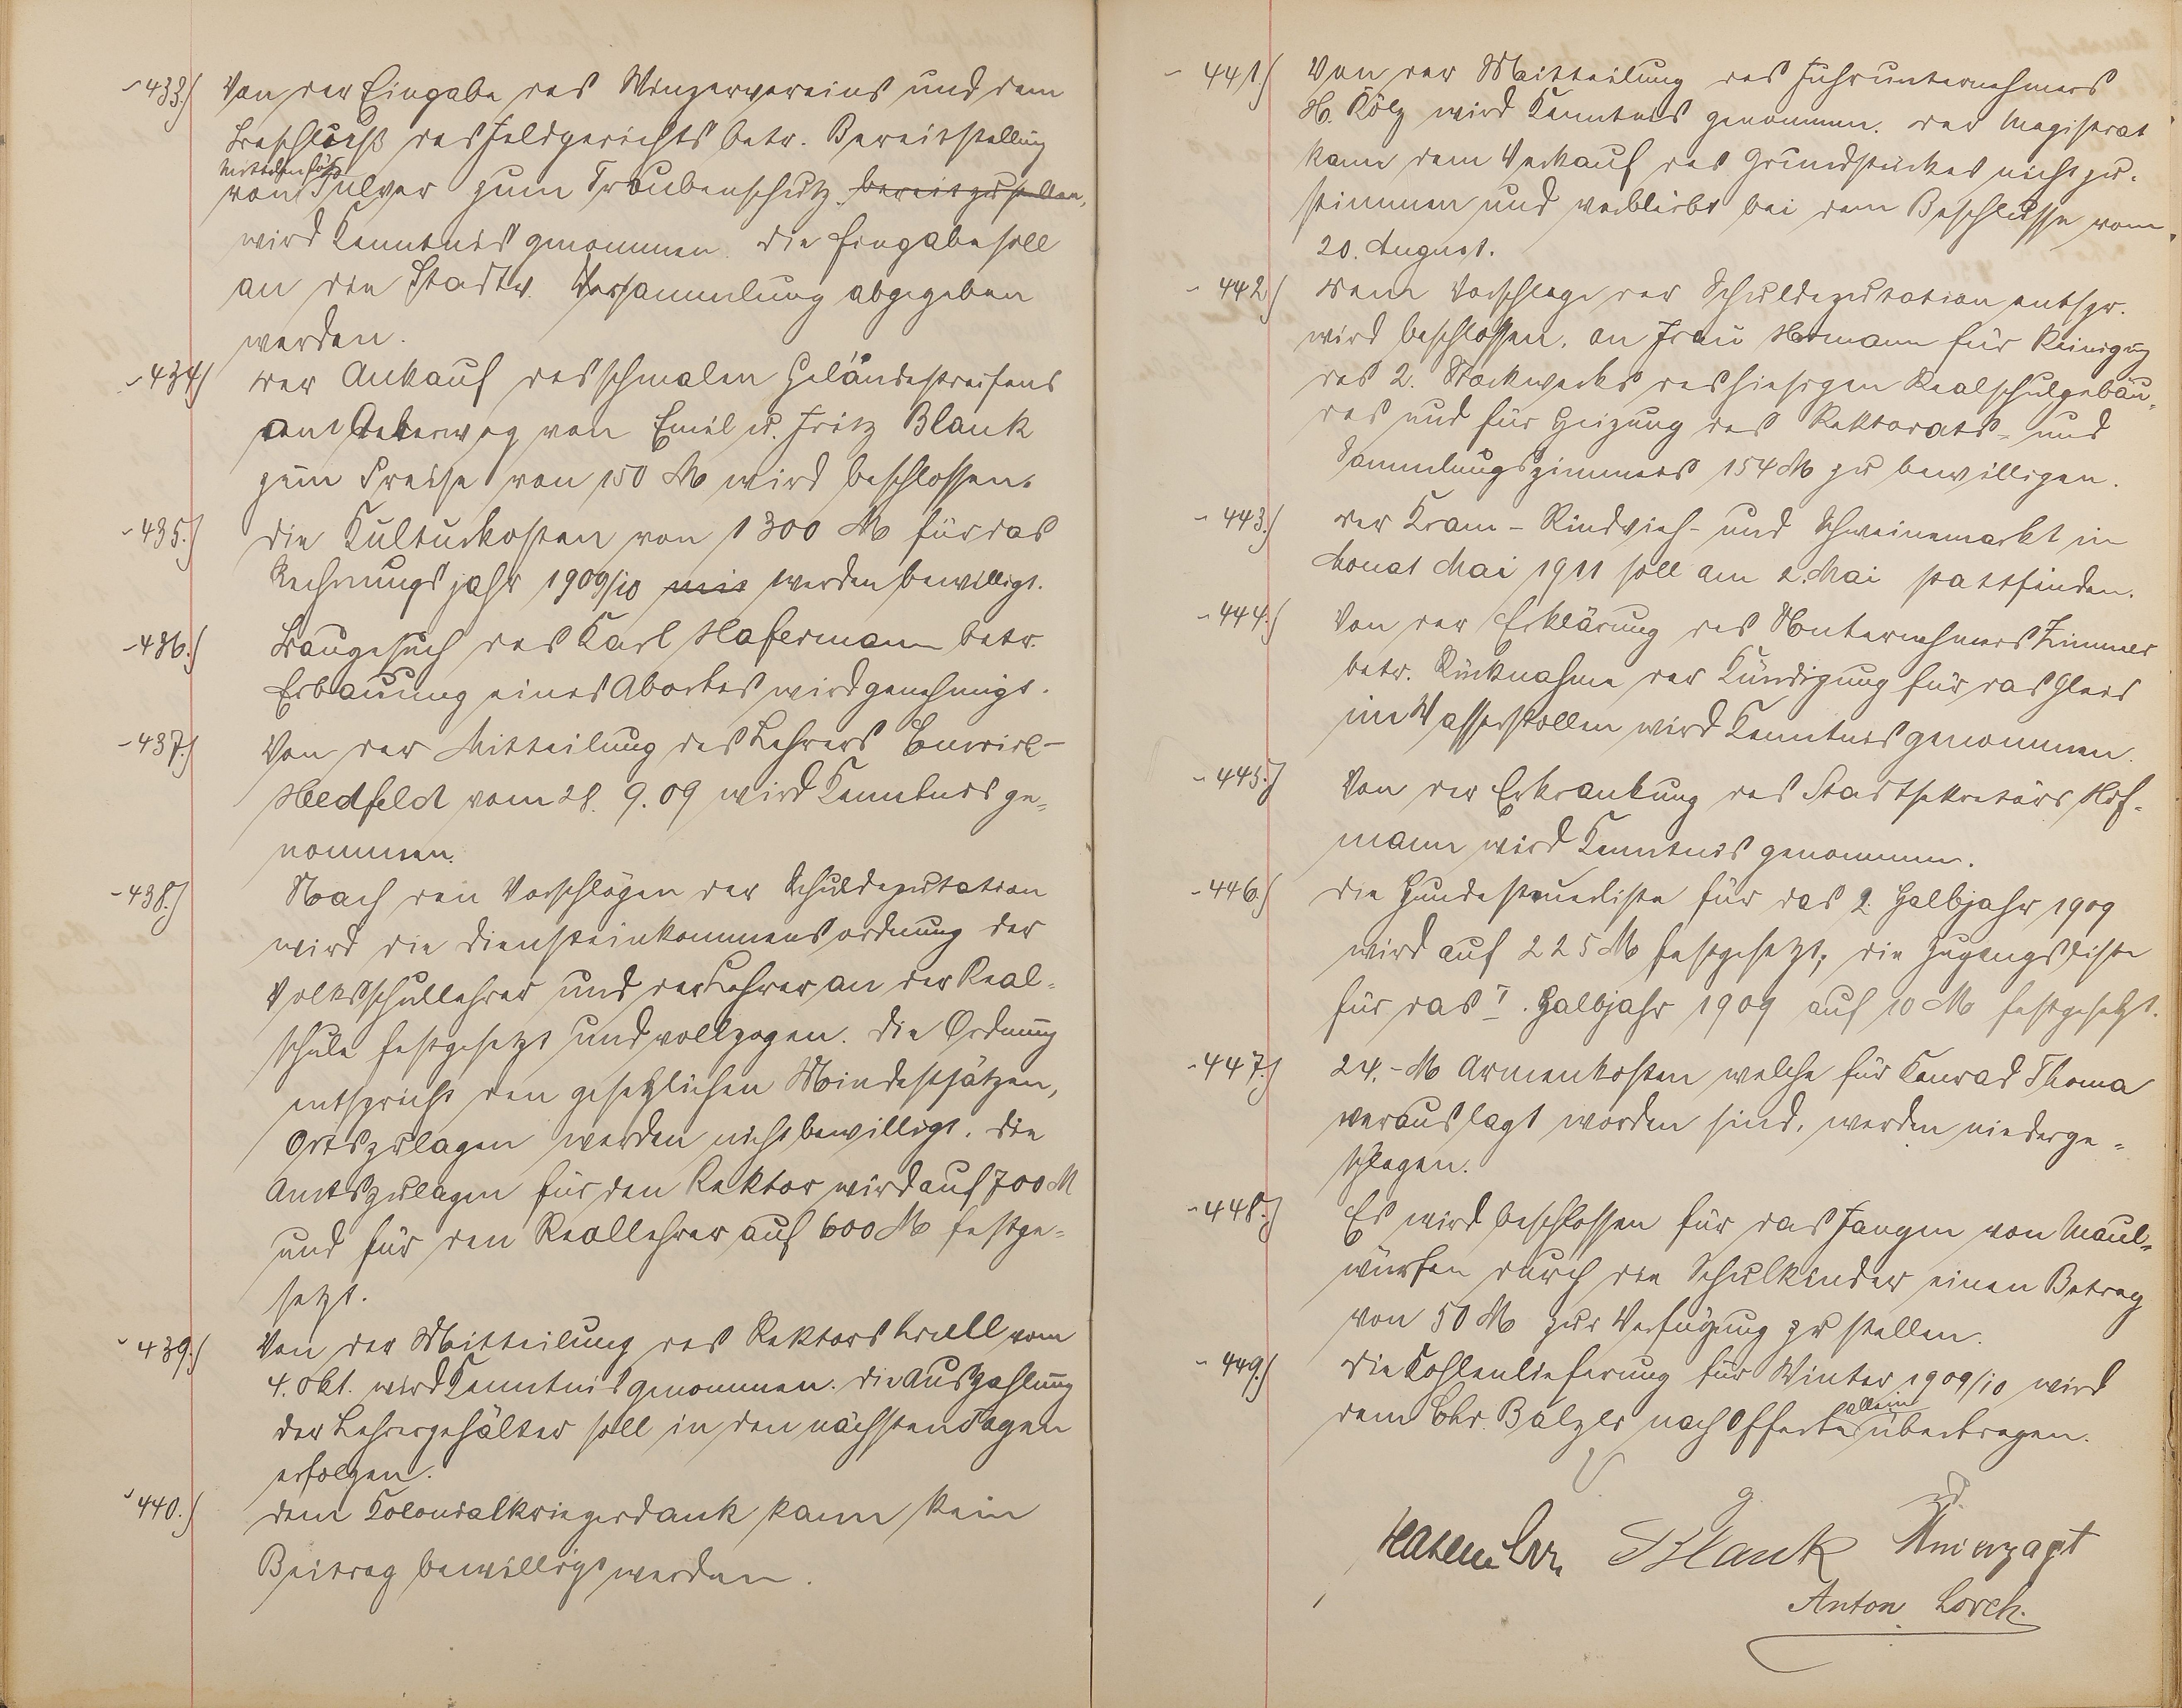 433.) Von der Eingabe des Winzervereins und dem
Beschluß des Feldgerichts betr. Bereitstellung
von Pulver zum Traubenschutz bereitzustellen,
wird Kenntnis genommen. Die Eingabe soll
an die Stadtv. Versammlung abgegeben
werden.
434.) Der Ankauf des schmalen Geländestreifens
am von Emil u. Fritz Blank
zum Preise von 150 M wird beschlossen.
435.) Die Kulturkosten von 1300 M für das
Rechnungsjahr 1909/10 mit werden bewilligt.
436.) Baugesuch des Karl Hafermann betr.
Erbauung eines Abortes wird genehmigt.
437.) Von der Mitteilung des Lehrers
Hedfeld vom 28. 9. 09 wird Kenntnis ge-
nommen.
438.) Nach den Vorschlägen der Schuldeputation
wird die Diensteinkommensordnung der
Volksschullehrer und der Lehrer an der Real-
schule festgesetzt und vollzogen. Die Ordnung
entspricht den gesetzlichen Mindestsätzen,
Ortszulagen werden nicht bewilligt. Die
Amtszulagen für den Rektor wird auf 700 M
und für den Reallehrer auf 600 M festge-
setzt.
439.) Von der Mitteilung des Rektors vom
4. Okt. wird Kenntnis genommen. Die Auszahlung
der Lehrergehälter soll in den nächsten Tagen
erfolgen.
440.) Dem Kolonialkriegerdank kann kein
Beitrag bewilligt werden.
441.) Von der Mitteilung des Fuhrunternehmers
H. Kölz wird Kenntnis genommen. Der Magistrat
kann dem Verkauf des Grundstückes nicht zu-
stimmen und verbleibt bei dem Beschlusse vom
20. August.
442.) Dem Vorschlage der Schuldeputation entspr.
wird beschlossen, an Frau Hofmann für Reinigug
des 2. Stockwerks des hiesigen Realschulgebäu-
des und für Heizung des Rektorats- und
Sammlungszimmers 154 M zu bewilligen.
443.) Der Kram- Rindvieh- und Schweinemarkt im
Monat Mai 1911 soll am 2. Mai stattfinden.
444.) Von der Erklärung des Unternehmers Zimmer
betr. Rücknahme der Kündigung für das Gleis
im Wasserstollen wird Kenntnis genommen.
445.) Von der Erkrankung des Stadtsekretärs Hof-
mann wird Kenntnis genommen.
446.) Die Hundesteuerliste für das 2. Halbjahr 1909
wird auf 225 M festgesetzt, die Zugangsliste
für das I. Halbjahr 1909 auf 10 M festgesetzt.
447.) 24.- M Armenkosten welche für Konrad Thoma
verauslagt worden sind, werden niederge-
schlagen.
448.) Es wird beschlossen für das Fangen von Maul-
würfen durch die Schulkinder einen Betrag
von 50 M zur Verfügung zu stellen.
449.) Die Kohlenlieferung für Winter 1909/10 wird
allein
dem Chr. Balzer nach Offerte übertragen.
Blank
Anton Lorch.